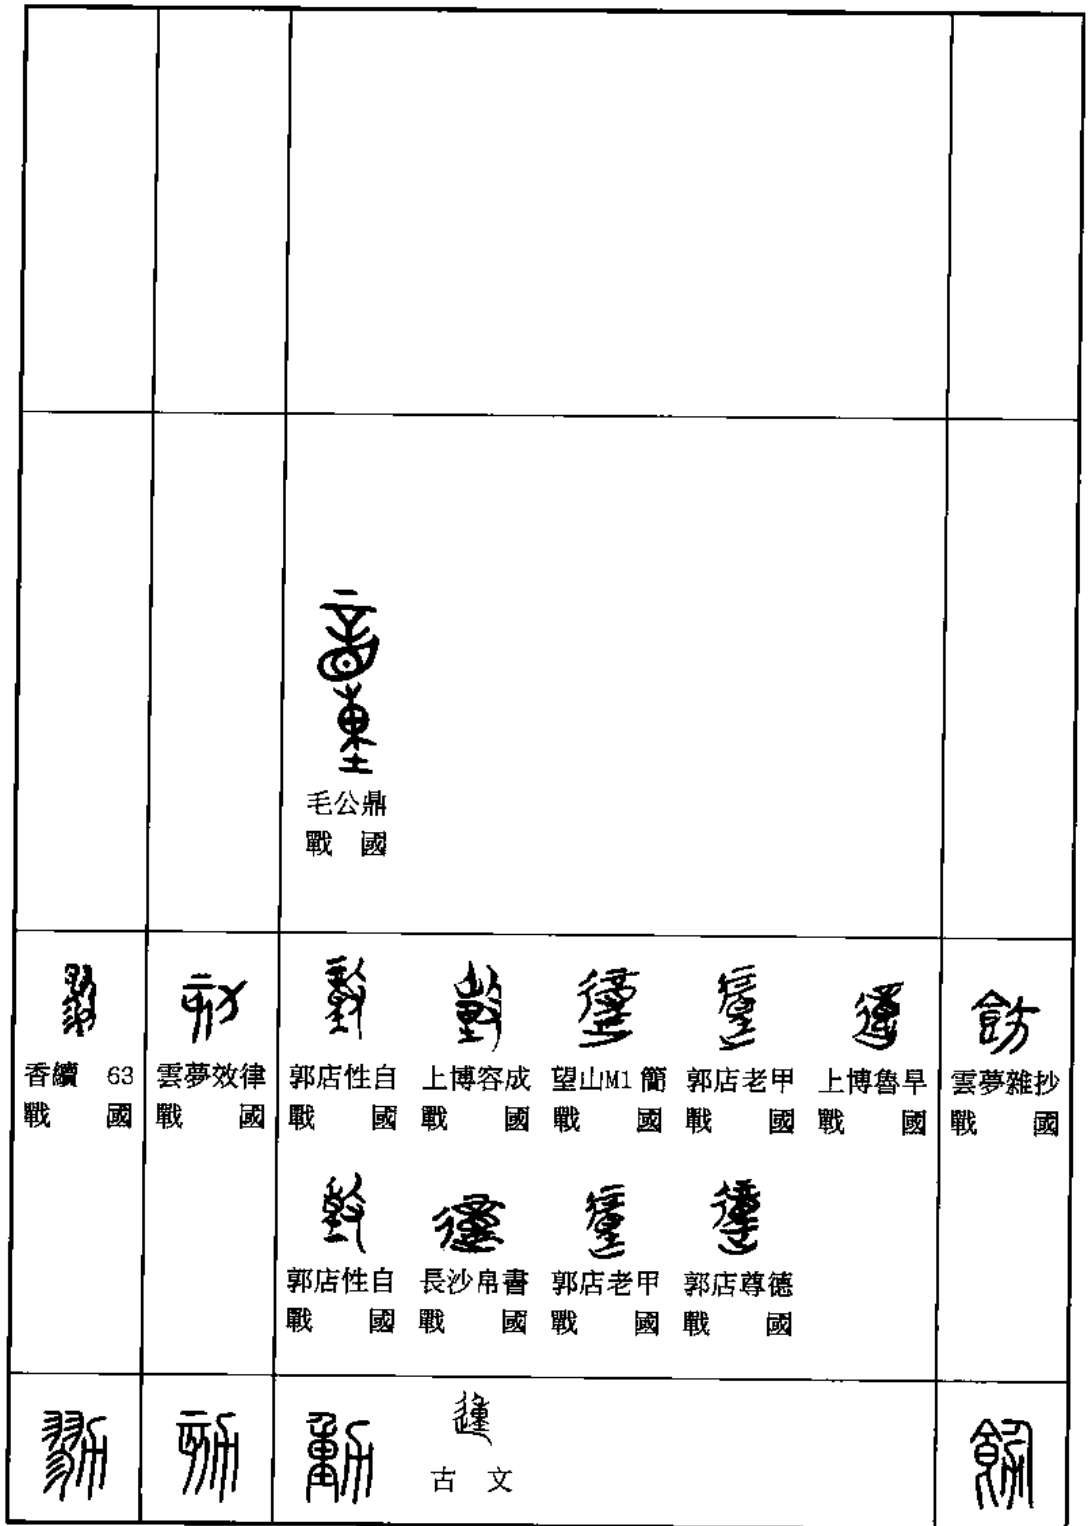 毛公鼎
戰國
香續 63
戰國
雲夢效律
戰國
郭店性自
戰國
上博容成
戰國
望山M1簡
戰國
郭店老甲
戰國
上博魯旱
戰國
雲夢雜抄
戰國
郭店性自
戰國
長沙帛書
戰國
郭店老甲
戰國
郭店尊德
戰國
古文